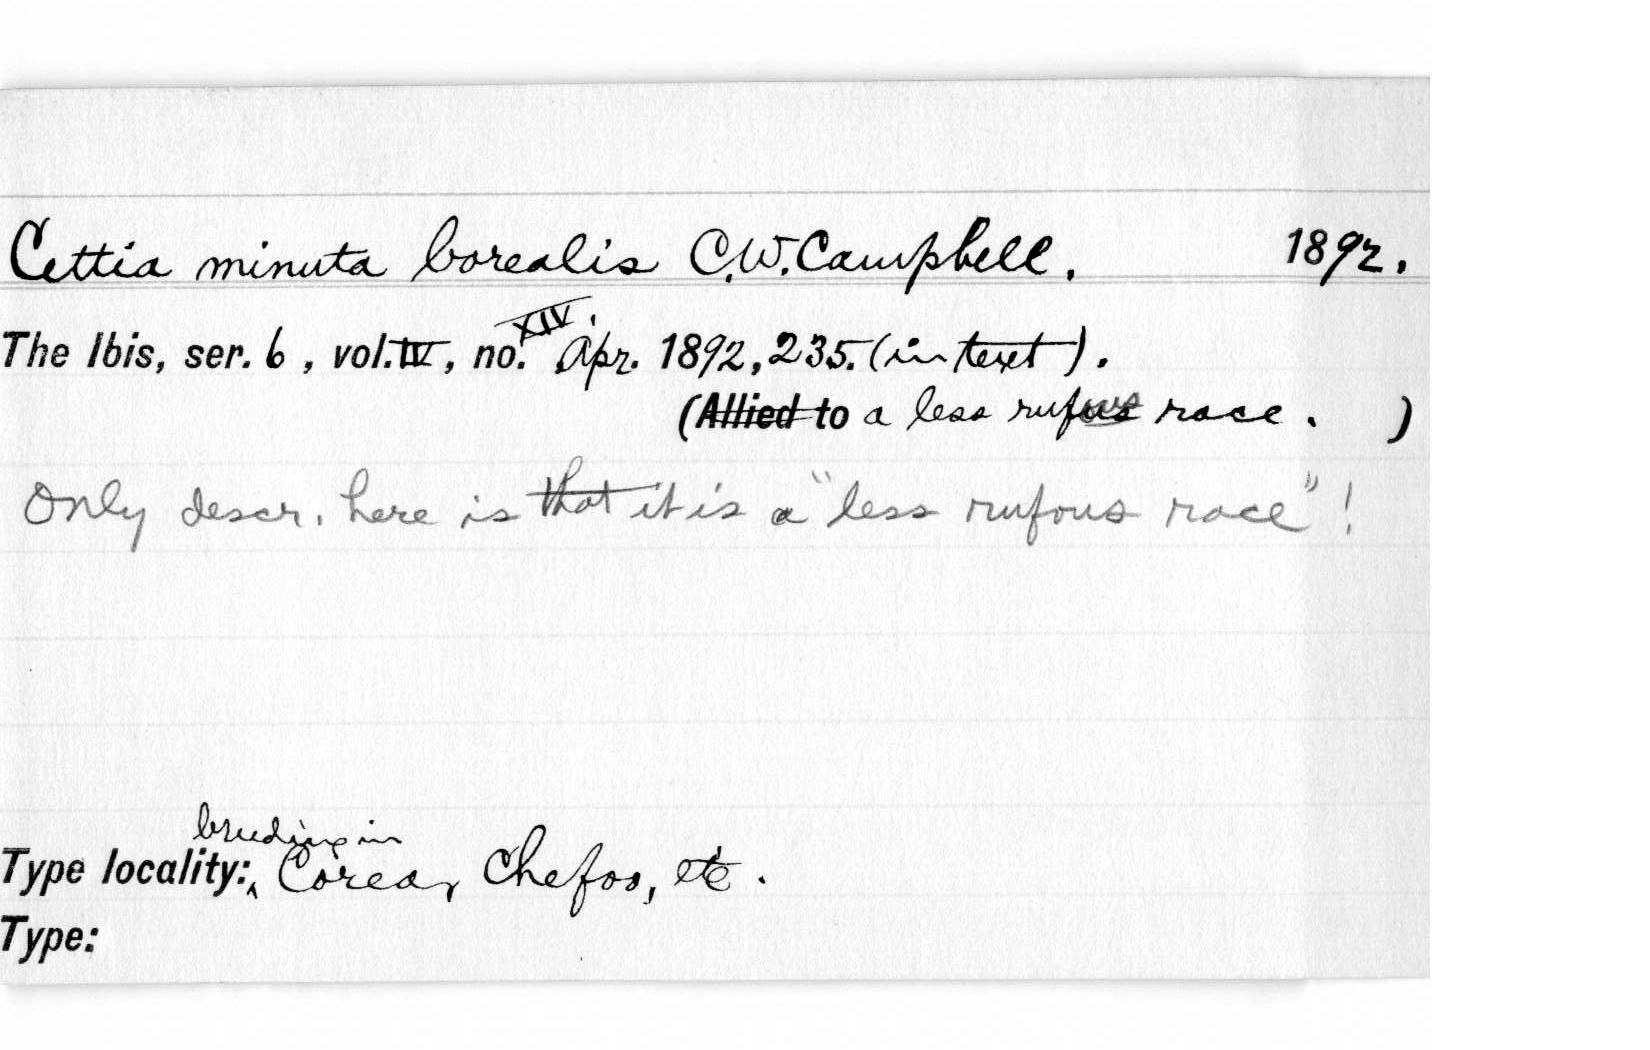 Cettia minuta borealis C.W. Campbell. 1892.
The Ibis, ser. 6, vol. IV, no. XIV. Apr. 1892, 235. (in text).
(Allied to a less rufous race. )
Only descr. here is that it is a "less rufous race"!
breeding in
Type locality: Corea, Chefoo, etc.
Type: